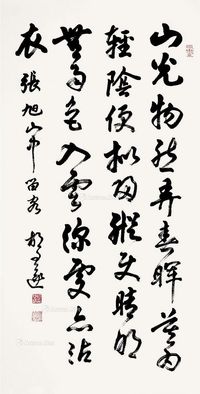 山光物態弄春暉莫為
輕陰便擬歸縱使晴明
無雨色入雲深處亦沾
衣 張旭山中留客 胡問遂